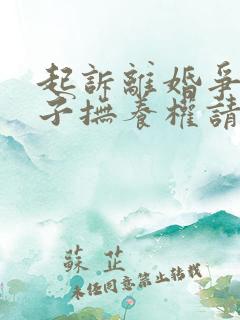 起訴離婚爭
子撫養權請
蘇芷
未经同意禁止转载